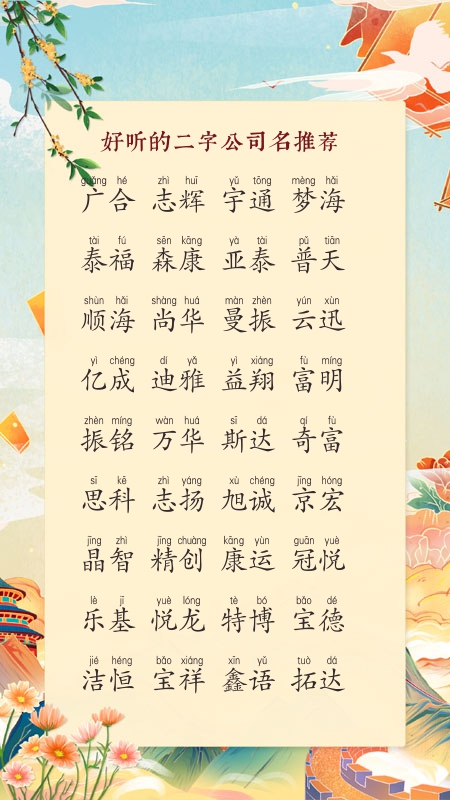 好听的二字公司名推荐
guǎng hé zhì huī yǔ tōng mèng hǎi
广合 志辉 宇通 梦海
tài fú sēn kāng yà tài pǔ tiān
泰福 森康 亚泰 普天
shùn hǎi shàng huá màn zhèn yún xùn
顺海 尚华 曼振 云迅
yì chéng dí yǎ yì xiáng fù míng
亿成 迪雅 益翔 富明
zhèn míng wàn huá sī dá qí fù
振铭 万华 斯达 奇富
sī kē zhì yáng xù chéng jīng hóng
思科 志扬 旭诚 京宏
jīng zhì jīng chuàng kāng yùn guān yuè
晶智 精创 康运 冠悦
lè jī yuè lóng tè bó bǎo dé
乐基 悦龙 特博 宝德
jié héng bǎo xiáng xīn yǔ tuò dá
洁恒 宝祥 鑫语 拓达